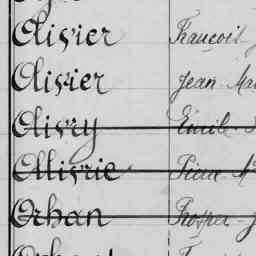 Olivier François
Olivier Jean Ma
Olivry Emile
Ollivrie Pierre M
Orhan Prosper J